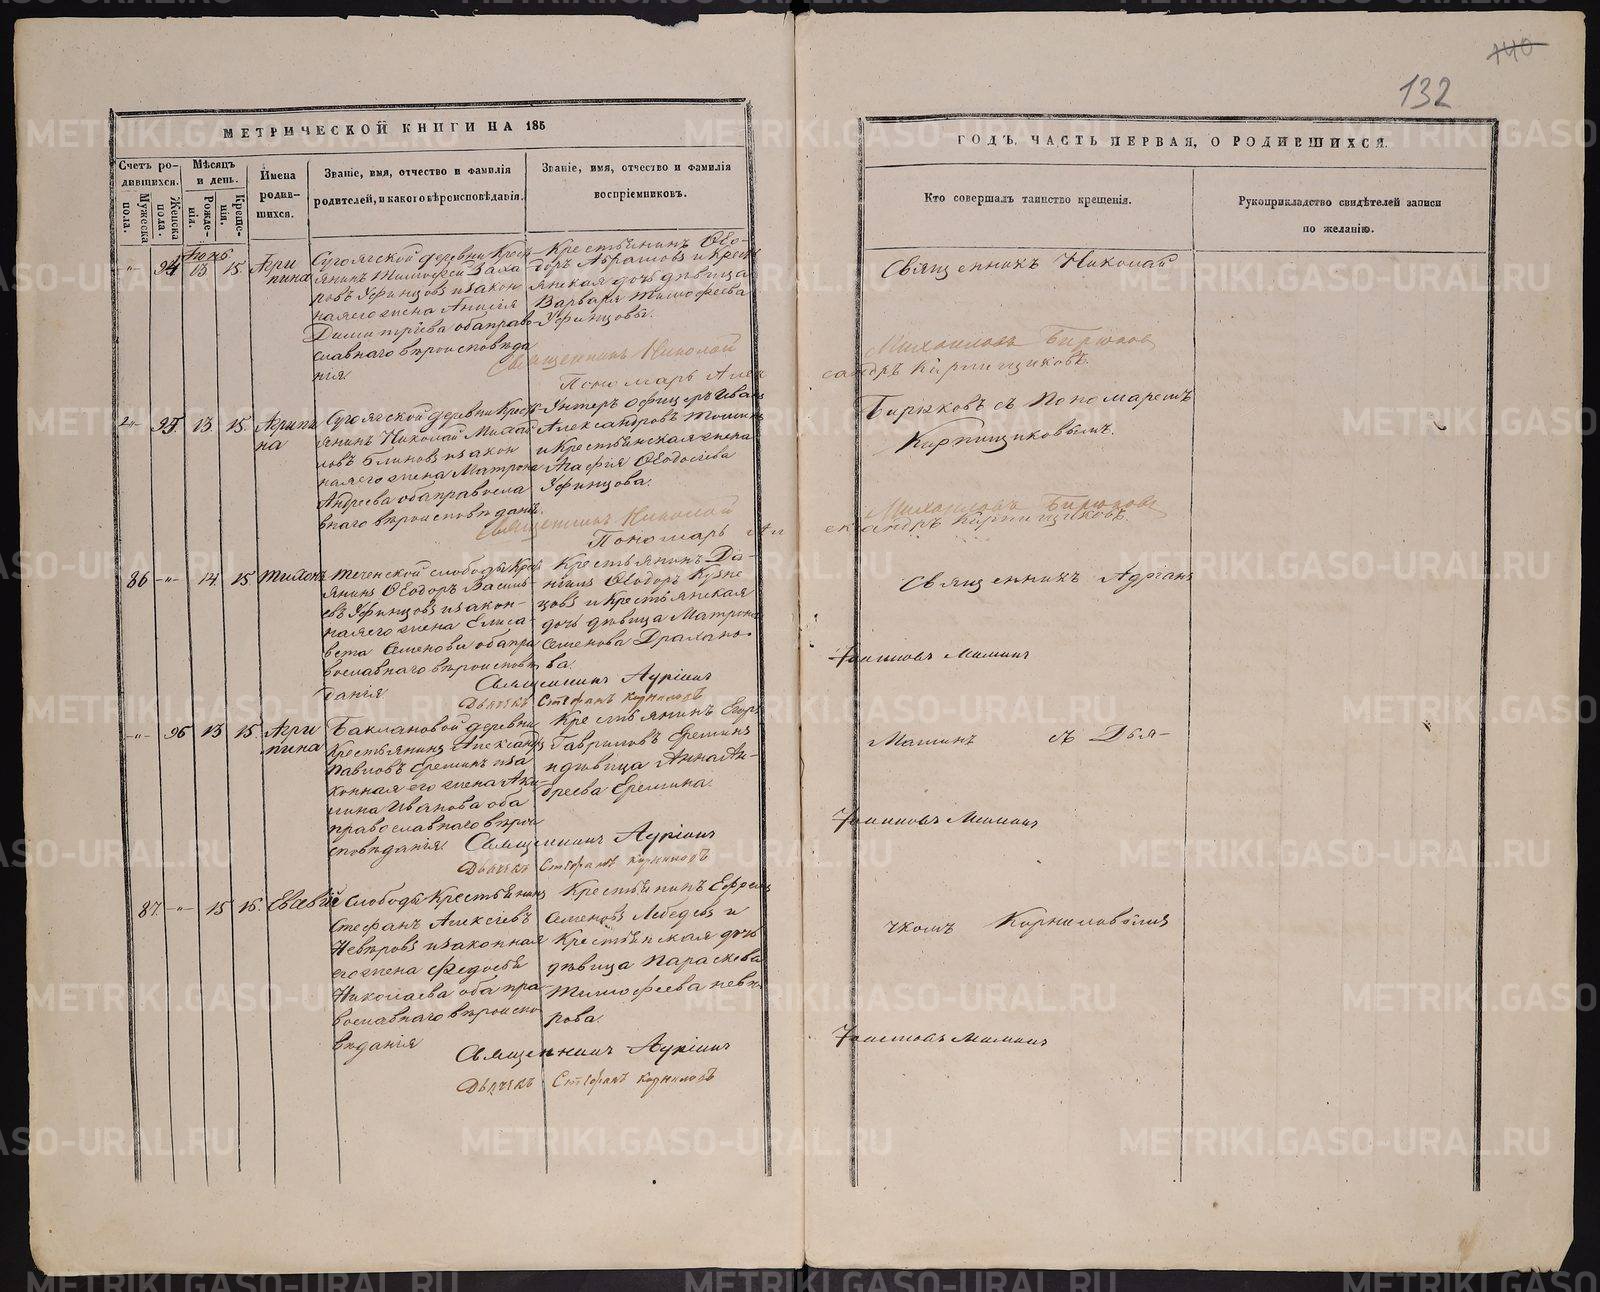 140
132
МЕТРИЧЕСКОЙ КНИГИ НА 185
ГОДЪ, ЧАСТЬ ПЕРВАЯ, О РОДИВШИХСЯ.
Счетъ ро-
дившихся.
Мужеска
пола.
Женска
пола.
Мѣсяцъ
и день.
Рожде-
нія.
Креще-
нія.
Имена
родив-
шихся.
Званіе, имя, отчество и фамилія
родителей, и какого вѣроисповѣданія.
Званіе, имя, отчество и фамилія
воспріемниковъ.
Кто совершалъ таинство крещенія.
Рукоприкладство свидѣтелей записи
по желанію.
Іюнь
94 13 15
Агри
пина
Сугоякской деревни Крест
янинъ Тимофей
ровъ Уфинцовъ и закон
ная его жена Анисія
Димитріева оба право
славнаго вѣроисповѣда
нія
Крестьянинъ Ѳео-
доръ Абрамовъ и Крест
янская дочь дѣвица
Варвара Тимофеева
Уфинцовы.
Священникъ Николай
Михайловъ Бирюковъ
Пономарь Алек
сандръ Кирпищиковъ.
Священникъ Николай
95. 13. 15.
Агрипи
на
Сугоякской деревни Крест
янинъ Николай Михай
ловъ Блиновъ и закон
ная его жена Матрона
Андреева оба правосла
внаго вѣроисповѣданія.
Унтеръ офицеръ Иванъ
Александровъ
и Крестьянская жена
Агафія Ѳеодосіева
Уфинцова.
Бирюковъ съ Пономаремъ
Кирпищиковымъ.
Священникъ Николай
Михайловъ Бирюковъ
Пономарь Ал
ександръ Кирпищиковъ.
86 -"- 14 15
Тихонъ
Теченской слободы Крест
янинъ Ѳеодоръ Василь-
евъ Уфинцовъ и закон-
ная его жена Елиса-
вета Семенова оба пра
вославнаго вѣроисповѣ
данія
Крестьянинъ Да-
ніилъ Ѳеодоръ Кузне
цовъ и Крестьянская
дочь дѣвица Матрона
Семенова
ва.
Священникъ Адріанъ
Священникъ
Дьячекъ Стефанъ Корниловъ
-"- 96 13 15
Агри
пина
Баклановой деревни
Крестьянинъ Александръ
Павловъ Еремин и за
конная его жена Аки-
лина Иванова оба
православнаго вѣрои
сповѣданія.
Крестьянинъ Егоръ
Гавриловъ Ереминъ
и дѣвица Анна Ан-
дреева Еремина.
Маминъ съ Дья-
Священникъ
Дьячекъ Стефанъ Корниловъ
87. -"- 15 16.
Евсевій
Слободы Крестьянинъ
Стефанъ Алексіевъ
Невѣровъ и законная
его жена Федосья
Николаева оба пра
вославнаго вѣроиспо
вѣданія
Крестьянинъ Ефремъ
Семеновъ Лебедевъ и
Крестьянская дочь
дѣвица Параскева
Тимофеева Невѣ
рова.
чкомъ Корниловымъ
Священникъ
Дьячекъ Стефанъ Корниловъ